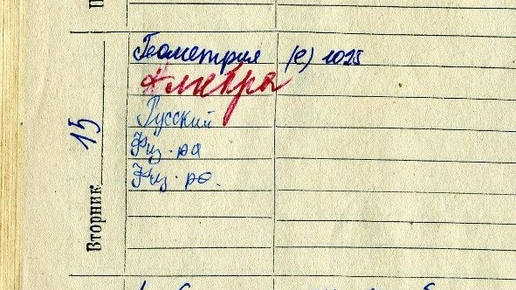 Вторник 15
Геометрия (е) 1025
Алгебра
Русский
Физ-ра
Физ-ра.